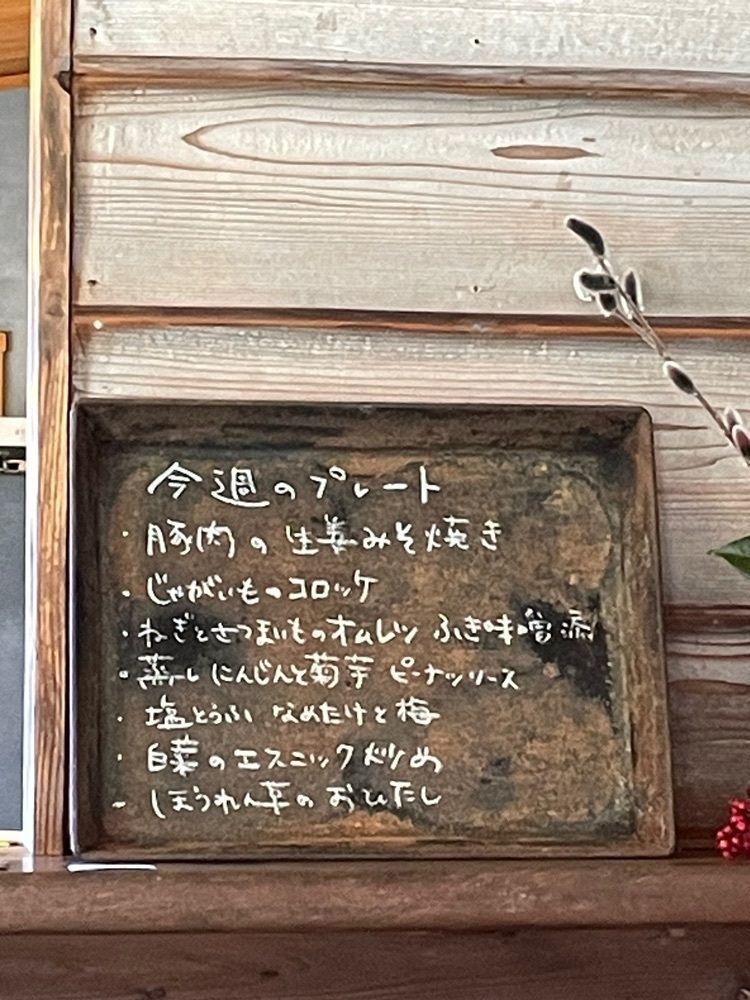 今週のプレート
・豚肉の生姜みそ焼き
・じゃがいものコロッケ
・ねぎとさつまいものオムレツ ふき味噌添
・蒸し にんじんと菊芋 ピーナッツソース
・塩とうふ なめたけと梅
・白菜のエスニック炒め
・ほうれん草のおひたし